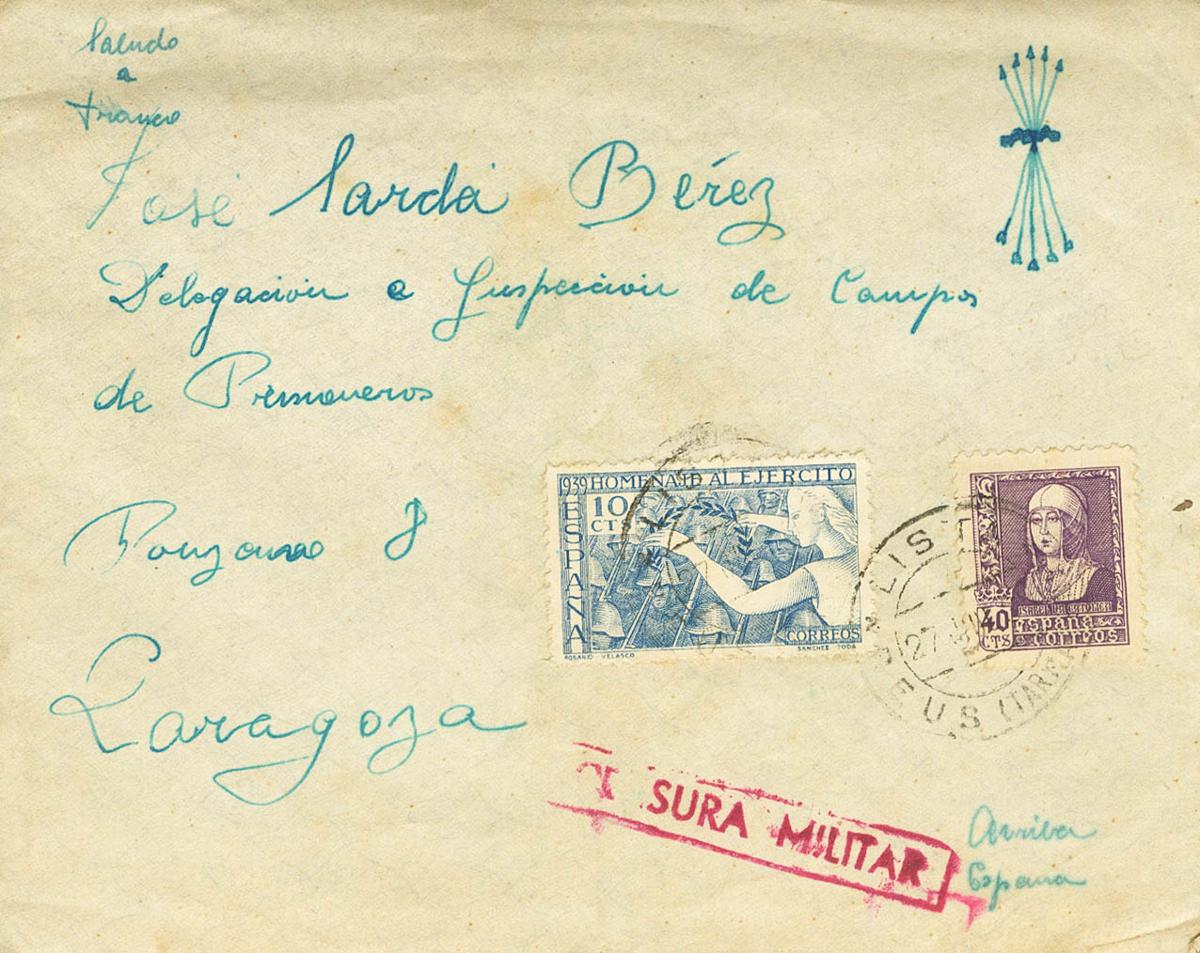 Saludo
a
Franco
José Sardá Beŕez
Delegación e Inspeccion de Campos
de Prisioneros
Ponzano 8
Zaragoza
1939 HOMENAJE AL EJERCITO
10
CTS
ESPAÑA
CORREOS
ROSARIO VELASCO
SANCHEZ TODA
LISTA
27
REUS (TARR
ISABEL LA CATOLICA
40
CTS
España
correos
SURA MILITAR
Arriba
España